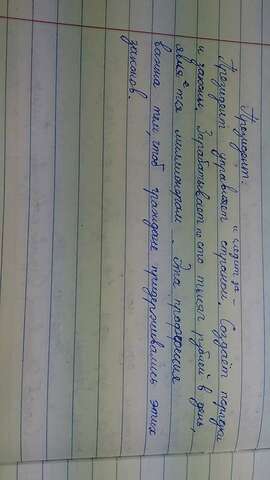 Президент.
и следит за –
Президент управляет страной. Создаёт порядки
и законы. Зарабатывает по сто тысяч рублей в день,
является миллионером. Эта профессия
важна тем, чтоб граждане придерживались этих
законов.